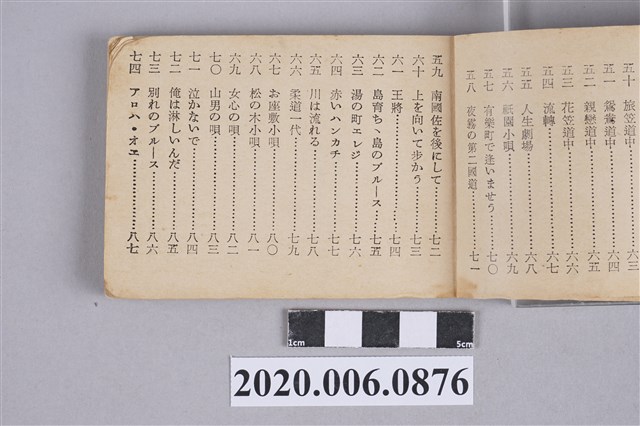 五十　旅笠道中……六三
五一　鴛鴦道中……六四
五二　親戀道中……六五
五三　花笠道中……六六
五四　流轉……六七
五五　人生劇場……六八
五六　祇園小唄……六九
五七　有樂町で逢いませう……七〇
五八　夜霧の第二國道……七一
五九　南國佐を後にして……七二
六十　上を向いて歩かう……七三
六一　王將……七四
六二　島育ち、島のブルース……七五
六三　湯の町エレジ……七六
六四　赤いハンカチ……七七
六五　川は流れる……七八
六六　柔道一代……七九
六七　お座敷小唄……八〇
六八　松の木小唄……八一
六九　女心の唄……八二
七〇　山男の唄……八三
七一　泣かないで……八四
七二　俺は淋しいんだ……八五
七三　別れのブルース……八六
七四　アロハ・オエ……八七
1cm
5cm
2020.006.0876